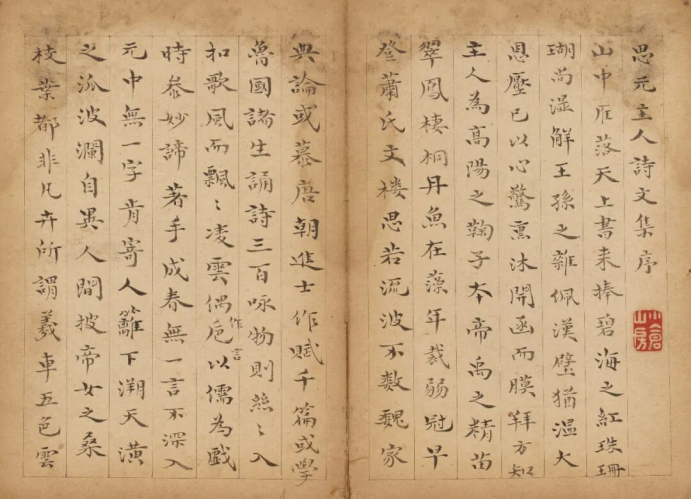 思元主人詩文集序
小倉山房
山中雁落天上書来捧碧海之紅珠珊
瑚尚溼解王孫之雜佩漢璧猶温大
恩壓已以心驚熏沐開函而膜拜方知
主人為高陽之鞠子夲帝禹之精苗
翠鳳棲桐丹魚在藻年裁弱冠早
登蕭氏文楼思若流波不數魏家
典論或慕唐朝進士作賦千篇或學
魯國諸生誦詩三百咏物則絲〻入
扣歌風而飄〻凌雲偶作巵言以儒為戲
時叅妙諦著手成春無一言不深入
元中無一字肯寄人籬下溯天潢
之派波瀾自異人間披帝女之桑
枝葉都非凡卉所謂羲車五色雲